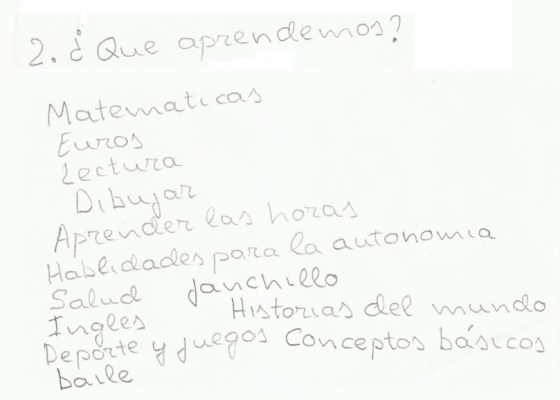 2. ¿Que aprendemos?
Matematicas
Euros
Lectura
Dibujar
Aprender las horas
Hablidades para la autonomia
Salud Janchillo
Ingles Historias del mundo
Deporte y juegos Conceptos básicos
baile